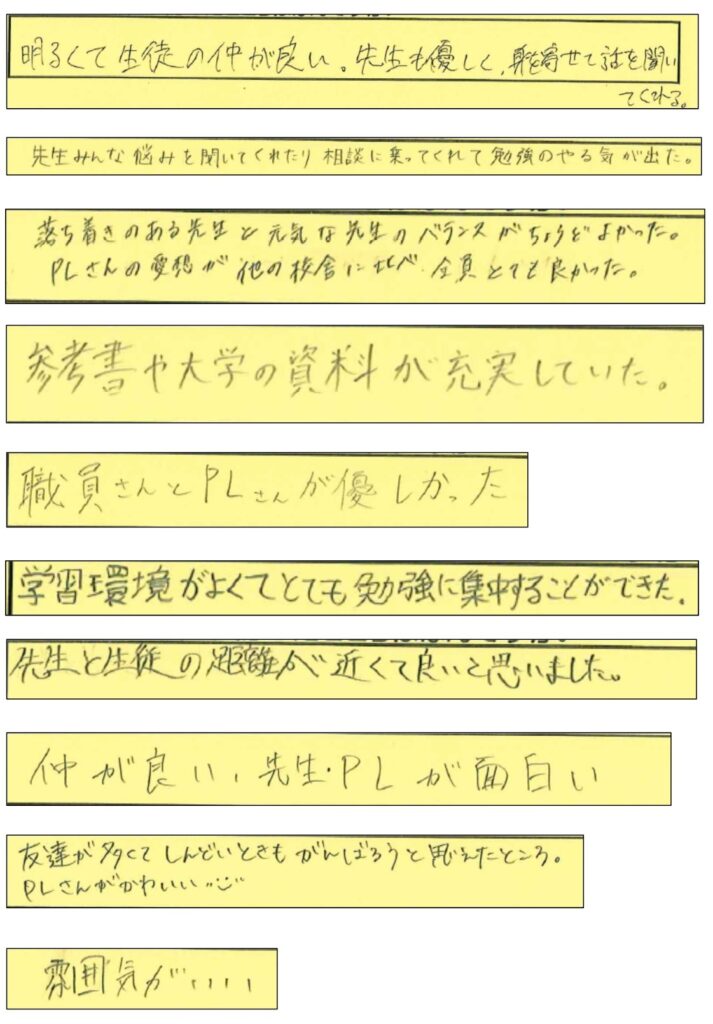 明るくて生徒の仲が良い。先生も優しく、身を寄せて話を聞い
てくれる。
先生みんな悩みを聞いてくれたり相談に乗ってくれて勉強のやる気が出た。
落ち着きのある先生と元気な先生のバランスがちょうどよかった。
PLさんの愛想が他の校舎に比べ全員とても良かった。
参考書や大学の資料が充実していた。
職員さんとPLさんが優しかった
学習環境がよくてとても勉強に集中することができた。
先生と生徒の距離が近くて良いと思いました。
仲が良い、先生・PLが面白い
友達が多くてしんどいときもがんばろうと思えたところ。
PLさんがかわいい
雰囲気がいい